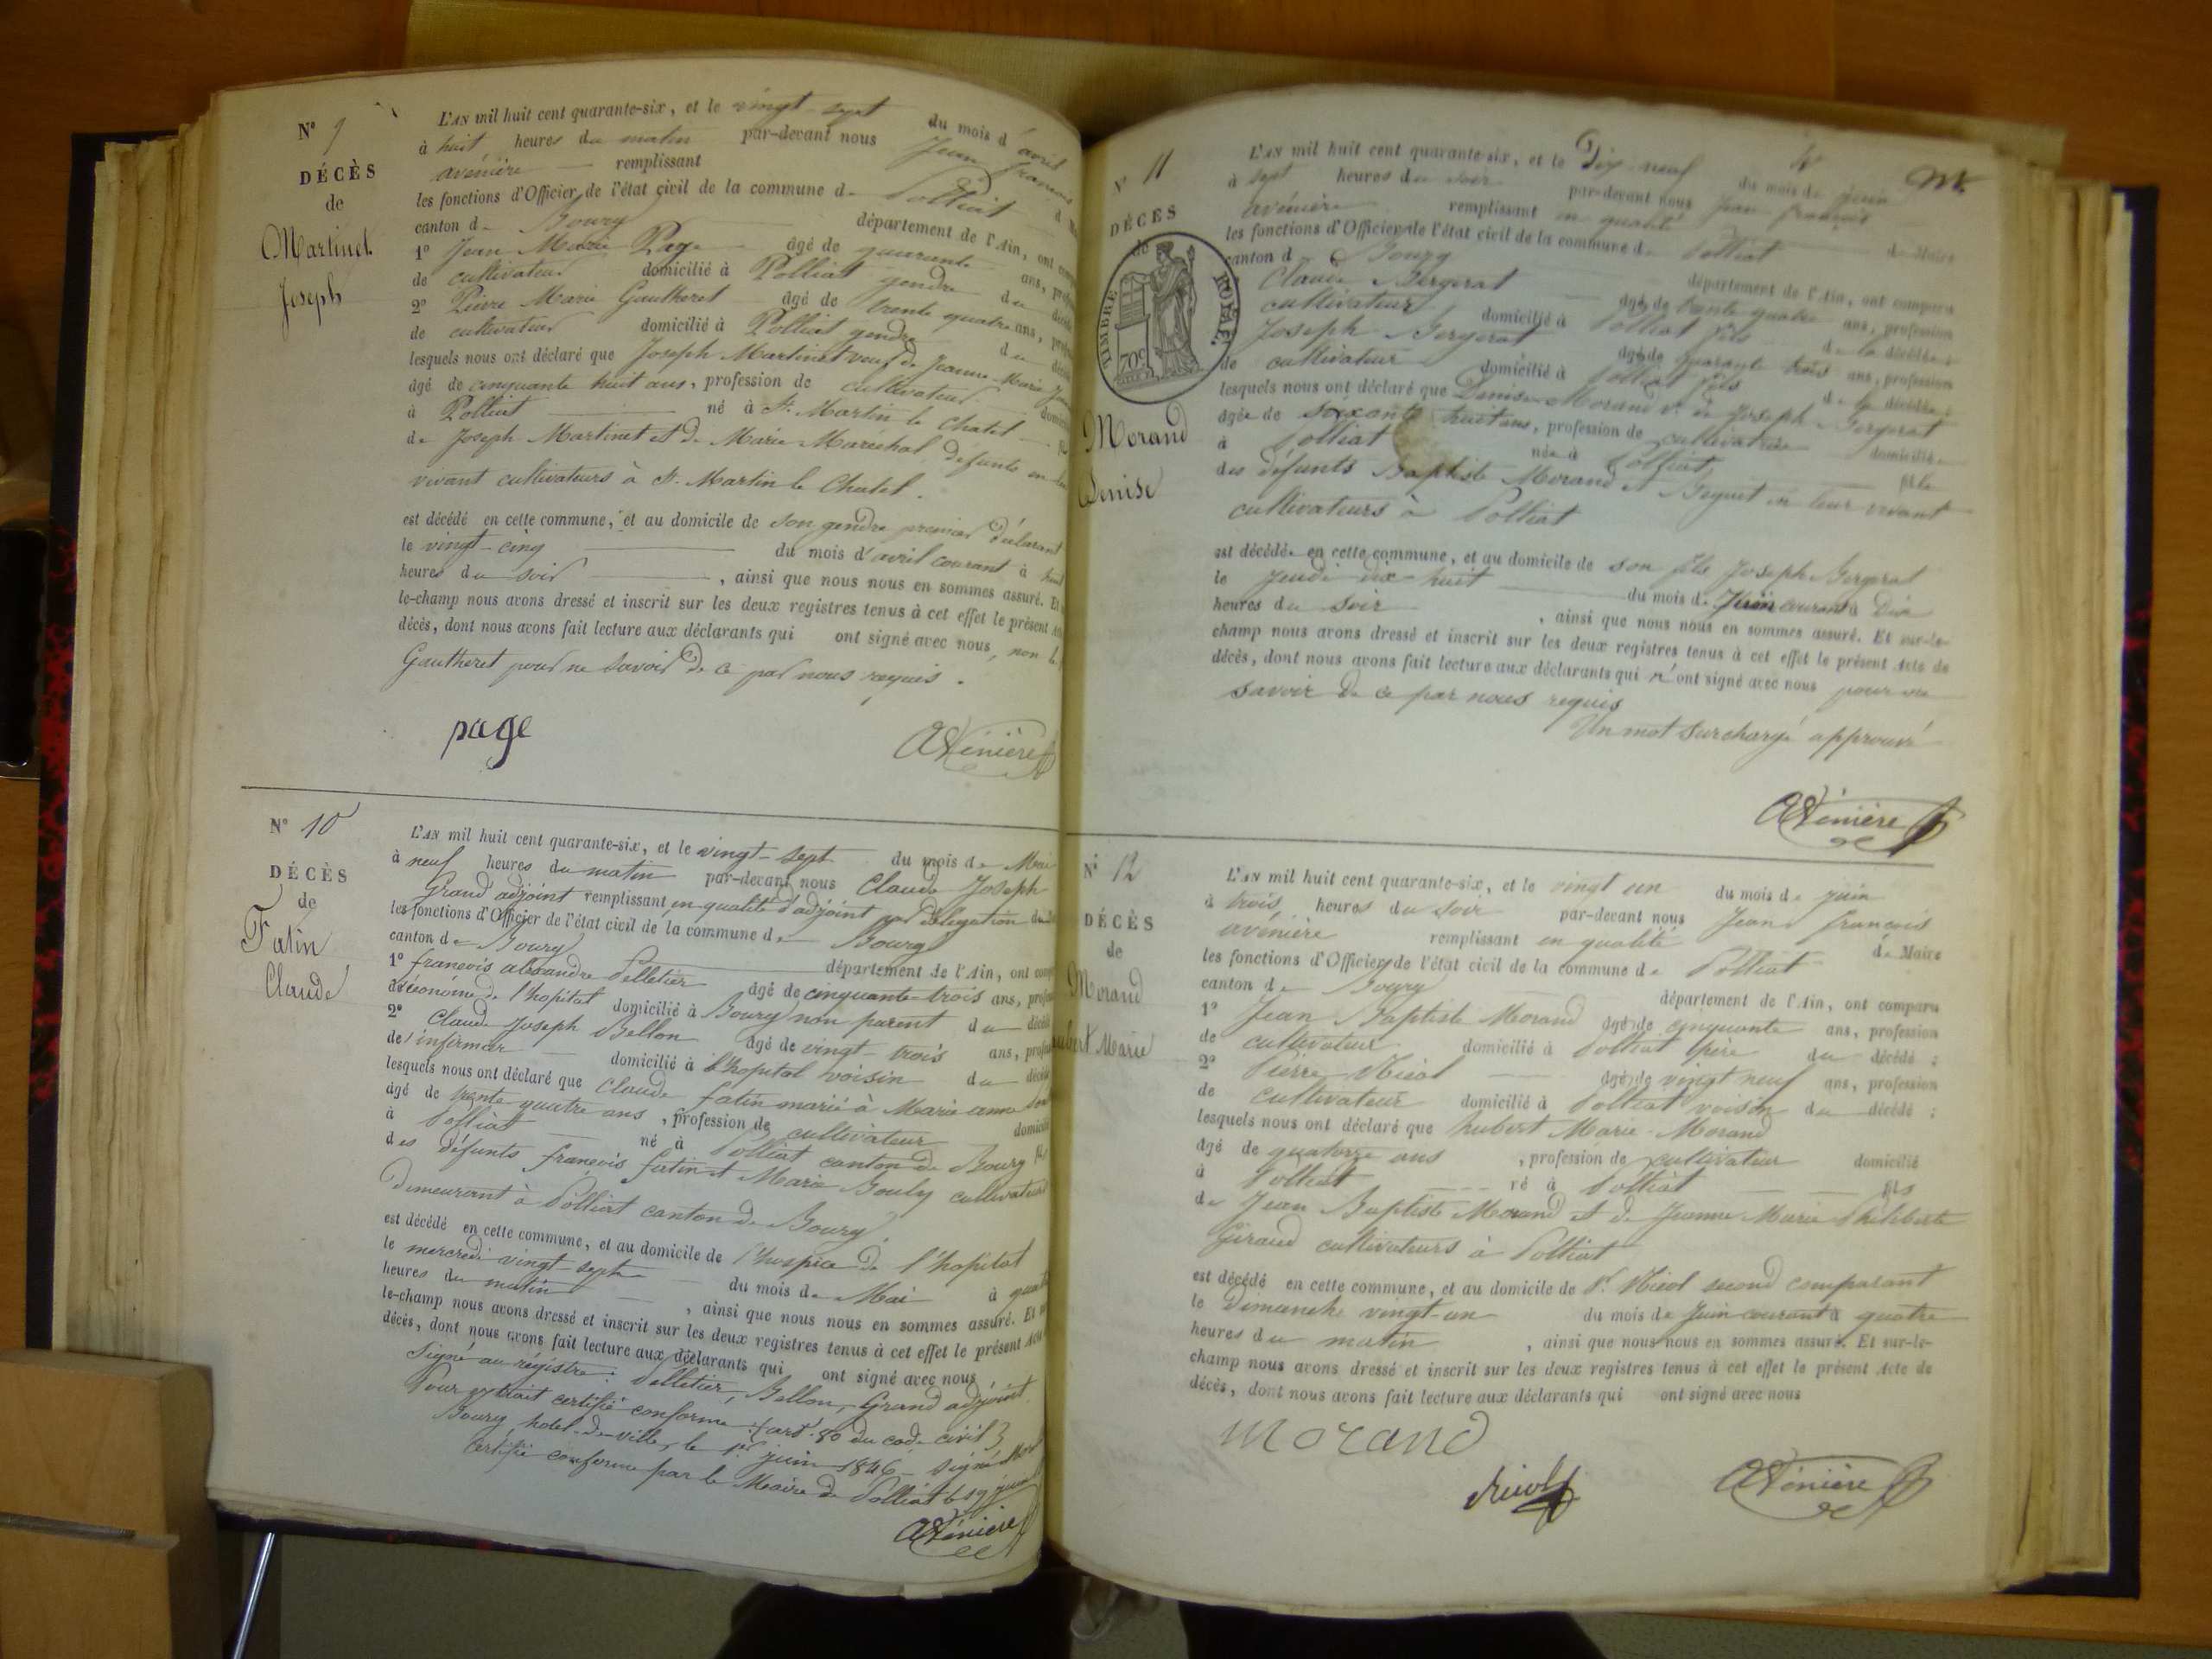 N° 9
DÉCÈS
de
Martinet
Joseph
L'AN mil huit cent quarante-six, et le vingt-sept du mois d'avril
à huit heures du matin par-devant nous Jean françois
avénière remplissant
les fonctions d'Officier de l'état civil de la commune de Polliat
canton de Bourg département de l'Ain, ont
1° Jean Marie Page âgé de quarante ans,
de cultivateur domicilié à Polliat gendre du
2° Pierre Marie Gautheret âgé de trente quatre ans,
de cultivateur domicilié à Polliat gendre du
lesquels nous ont déclaré que Joseph Martinet veuf de Jeanne Marie
âgé de cinquante huit ans, profession de cultivateur
à Polliat né à St. Martin le Chatel
de Joseph Martinet et de Marie Maréchal defunts en leur
vivant cultivateurs à St. Martin le Chatel.
est décédé en cette commune, et au domicile de son gendre premier déclarant
le vingt-cinq du mois d'avril courant à huit
heures du soir, ainsi que nous nous en sommes assuré. Et
le-champ nous avons dressé et inscrit sur les deux registres tenus à cet effet le présent
décès, dont nous avons fait lecture aux déclarants qui ont signé avec nous, non le
Gautheret pour ne savoir de ce par nous requis.
page
Avénière
N° 10
DÉCÈS
de
Fatin
Claude
L'AN mil huit cent quarante-six, et le vingt-sept du mois de Mai
à neuf heures du matin par-devant nous Claude Joseph
Grand adjoint remplissant en qualité d'adjoint par délégation du
les fonctions d'Officier de l'état civil de la commune de Bourg
canton de Bourg département de l'Ain, ont
1° françois alexandre Pelletier âgé de cinquante-trois ans,
économe de l'hopital domicilié à Bourg non parent du
2° Claude Joseph Bellon âgé de vingt-trois ans,
de infirmier domicilié à l'hopital voisin du
lesquels nous ont déclaré que Claude fatin marié à Marie anne
âgé de trente-quatre ans, profession de cultivateur
à Polliat né à Polliat canton de Bourg
des défunts françois fatin et Marie Bouly cultivateurs
demeurant à Polliat canton de Bourg.
est décédé en cette commune, et au domicile de l'hospice de l'hopital
le mercredi vingt-sept du mois de Mai à
heures du matin, ainsi que nous nous en sommes assuré. Et
le-champ nous avons dressé et inscrit sur les deux registres tenus à cet effet le présent Acte
décès, dont nous avons fait lecture aux déclarants qui ont signé avec nous
Signé au régistre: Pelletier, Bellon, Grand adjoint
Pour extrait certifié conforme (art. 80 du code civil)
Bourg hotel-de-ville, le 1er juin 1846 - signé
certifié conforme par le Maire de Polliat le 19 juin
Avénière
N° 11
DÉCÈS
de
TIMBRE ROYAL
Morand
Denise
L'AN mil huit cent quarante-six, et le Dix-neuf du mois de juin
à sept heures du soir par-devant nous Jean françois
avénière remplissant en qualité de Maire
les fonctions d'Officier de l'état civil de la commune de Polliat
canton d Bourg département de l'Ain, ont comparu
Claude Bergerat âgé de trente quatre ans, profession
cultivateur domicilié à Polliat fils de la décédée;
Joseph Bergerat âgé de quarante trois ans, profession
de cultivateur domicilié à Polliat fils de la décédée;
lesquels nous ont déclaré que Denise Morand ve de Joseph Bergerat
âgée de soixante huit ans, profession de cultivatrice domiciliée
à Polliat née à Polliat fille
des défunts Baptiste Morand et Bequet en leur vivant
cultivateurs à Polliat
est décédée en cette commune, et au domicile de son fils Joseph Bergerat
le Jeudi dix-huit du mois de Juin courant à Dix
heures du soir, ainsi que nous nous en sommes assuré. Et sur-le-
champ nous avons dressé et inscrit sur les deux registres tenus à cet effet le présent Acte de
décès, dont nous avons fait lecture aux déclarants qui n'ont signé avec nous pour ne
savoir de ce par nous requis
Un mot surchargé approuvé
Avénière
N° 12
DÉCÈS
de
Morand
hubert Marie
L'AN mil huit cent quarante-six, et le vingt un du mois de juin
à trois heures du soir par-devant nous Jean françois
avénière remplissant en qualité de Maire
les fonctions d'Officier de l'état civil de la commune de Polliat
canton de Bourg département de l'Ain, ont comparu
1° Jean Baptiste Morand âgé de cinquante ans, profession
de cultivateur domicilié à Polliat père du décédé;
2° Pierre Nicol âgé de vingt neuf ans, profession
de cultivateur domicilié à Polliat voisin du décédé;
lesquels nous ont déclaré que hubert Marie Morand
âgé de quatorze ans, profession de cultivateur domicilié
à Polliat né à Polliat fils
de Jean Baptiste Morand et de Jeanne Marie Philiberte
Giraud cultivateurs à Polliat
est décédé en cette commune, et au domicile de Sr. Nicol second comparant
le Dimanche vingt-un du mois de Juin courant à quatre
heures du matin, ainsi que nous nous en sommes assuré. Et sur-le-
champ nous avons dressé et inscrit sur les deux registres tenus à cet effet le présent Acte de
décès, dont nous avons fait lecture aux déclarants qui ont signé avec nous
morand
Nicol
Avénière